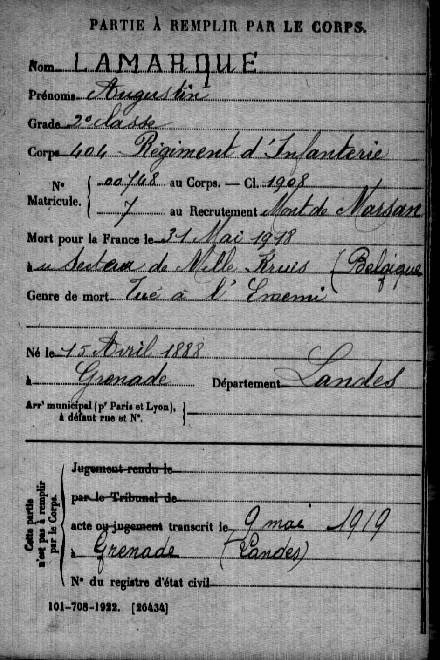 PARTIE À REMPLIR PAR LE CORPS.
Nom LAMARQUE
Prénoms Augustin
Grade 2e classe
Corps 404 Régiment d'Infanterie
N° Matricule. { 00748 au Corps. — Cl. 1908
7 au Recrutement Mont de Marsan
Mort pour la France le 31 Mai 1918
à u secteur de Mille Kruis (Belgique
Genre de mort Tué à l'Ennemi
Né le 15 Avril 1888
à Grenade Département Landes
Arrt municipal (pr Paris et Lyon), à défaut rue et N°. }
Cette partie n'est pas à remplir par le Corps. {
Jugement rendu le
par le Tribunal de
acte ou jugement transcrit le 9 mai 1919
à Grenade (Landes)
N° du registre d'état civil
101-708-1922. [26434]